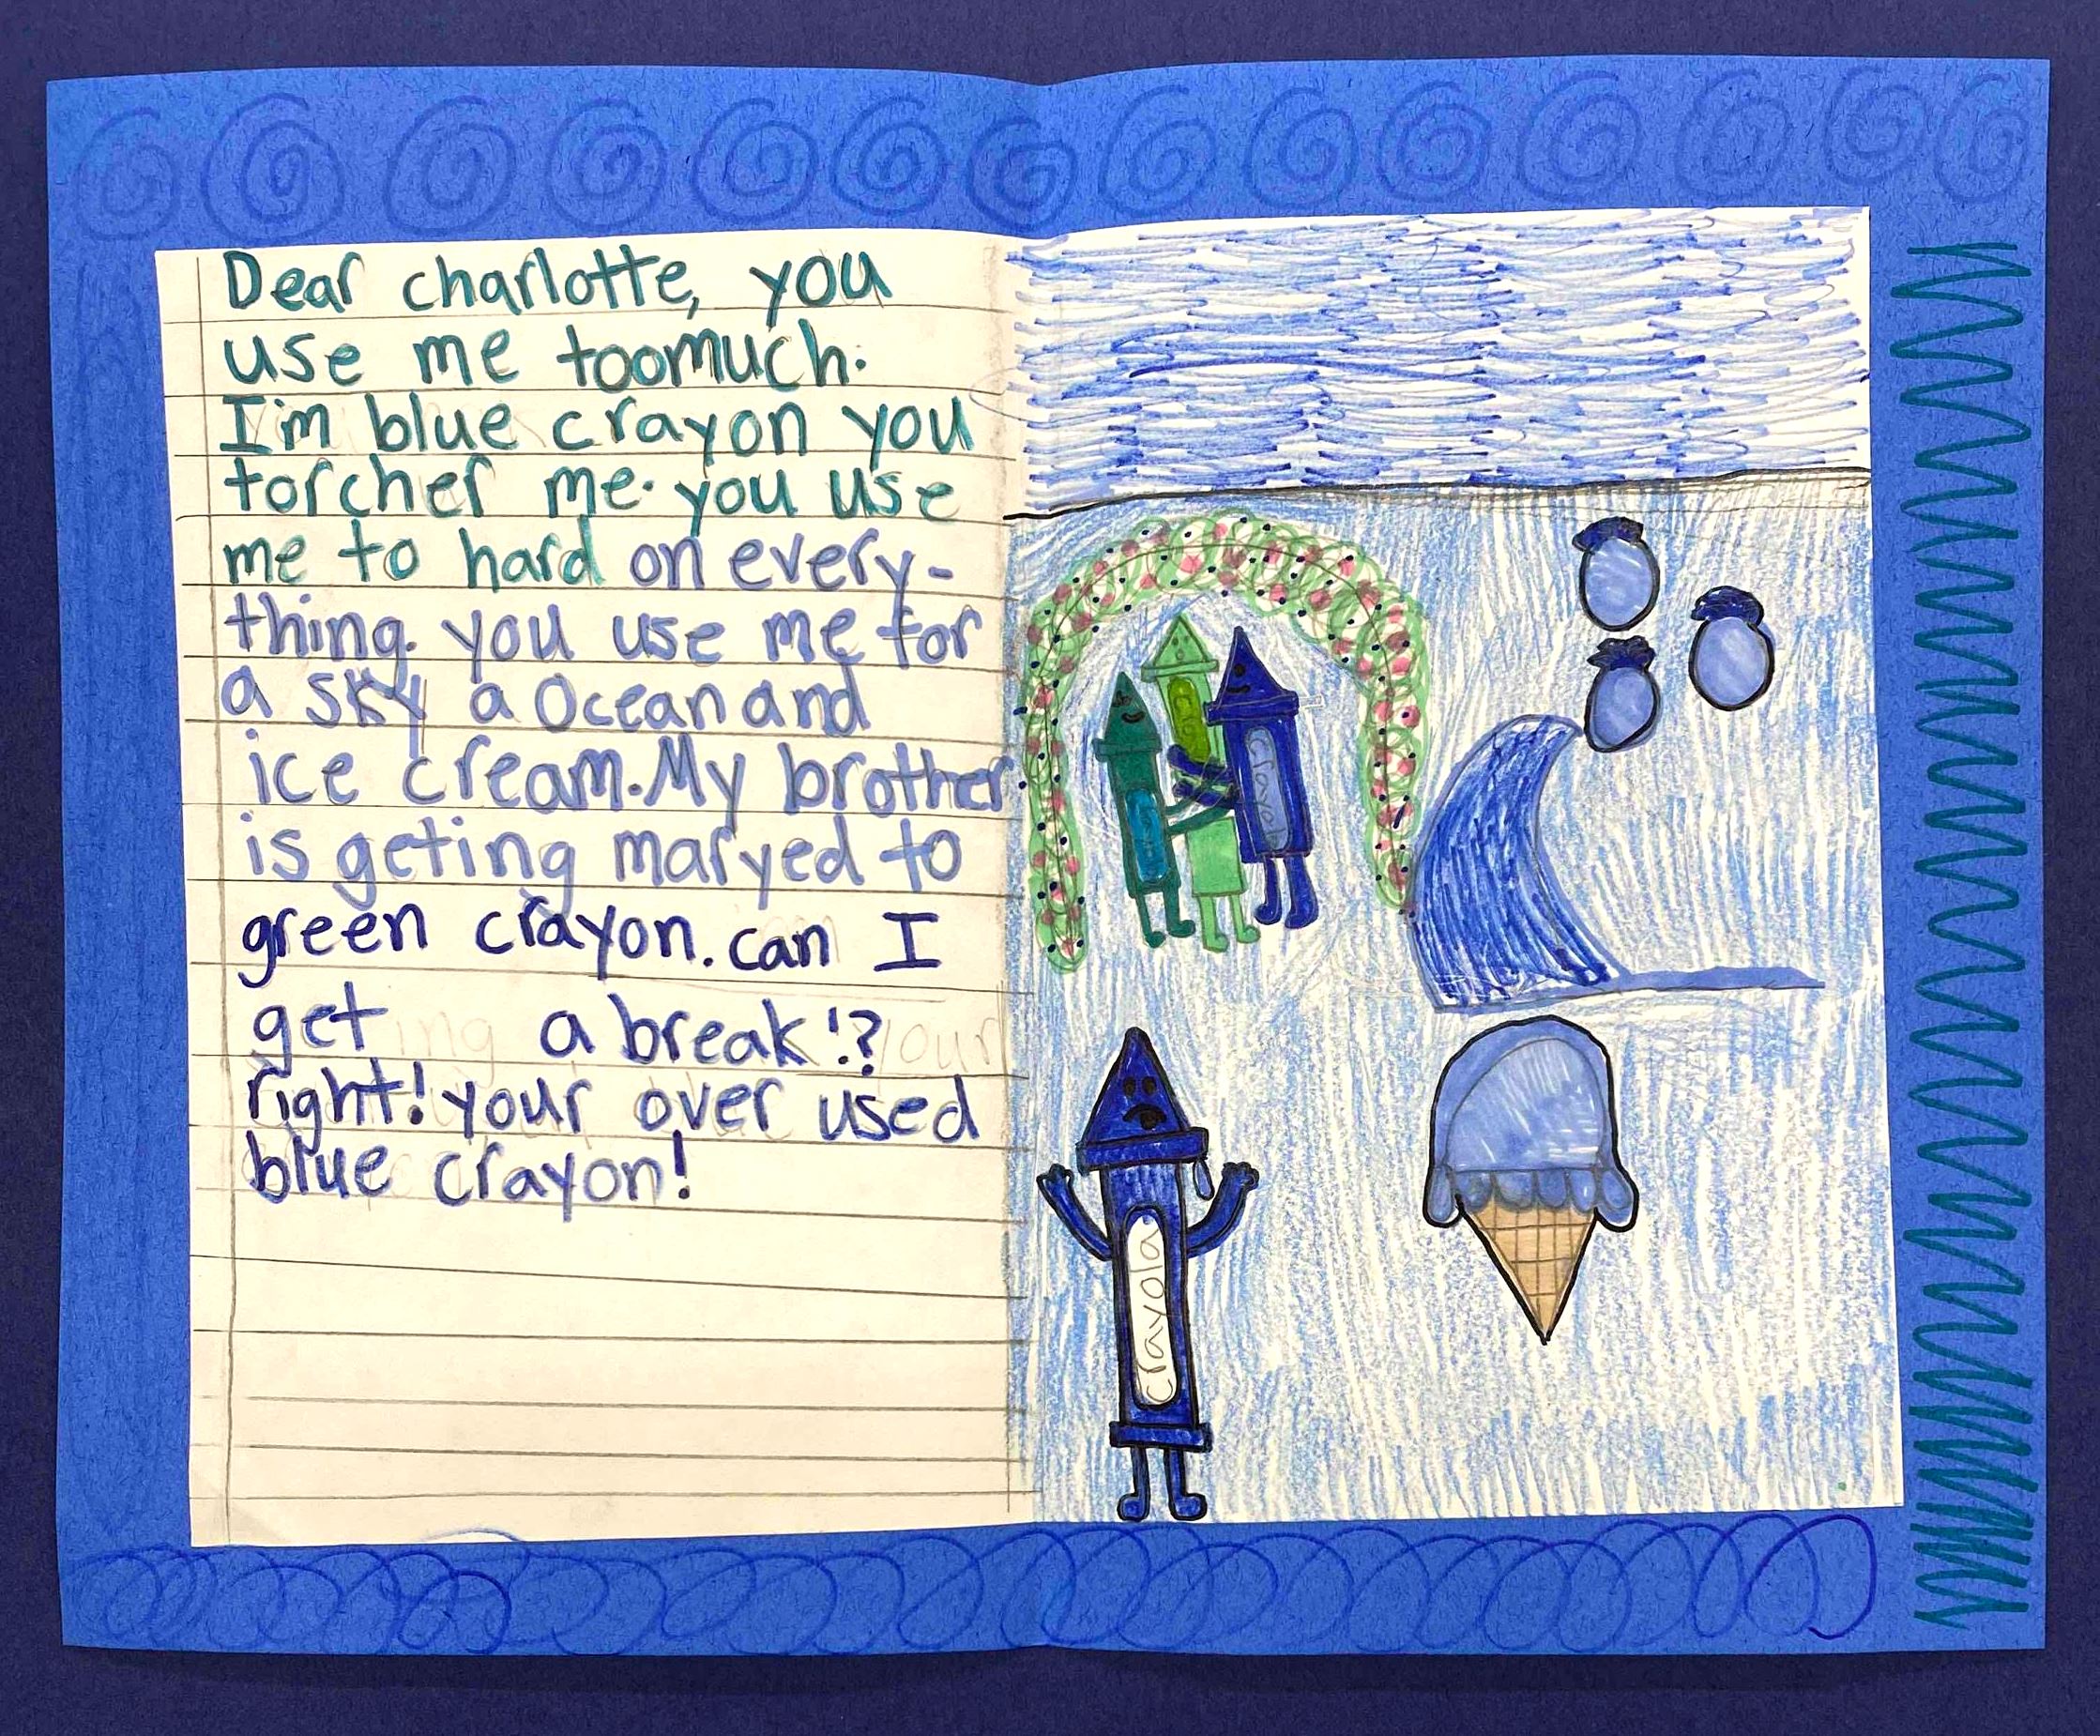 Dear charlotte, you
use me toomuch.
I'm blue crayon you
torcher me. you use
me to hard on every-
thing. you use me for
a sky a Ocean and
ice cream. My brother
is geting maryed to
green crayon. can I
get a break!?
right! your over used
blue crayon!
crayola
crayola